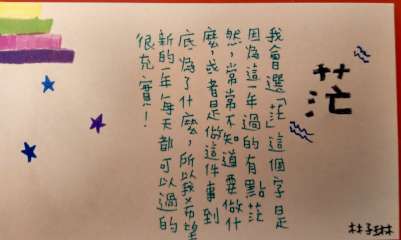 茫
我會選「茫」這個字是
因為這一年過的有點茫
然，常常不知道要做什
麼，或者是做這件事到
底為了什麼，所以我希望
新的一年每天都可以過的
很充實！
林子琳